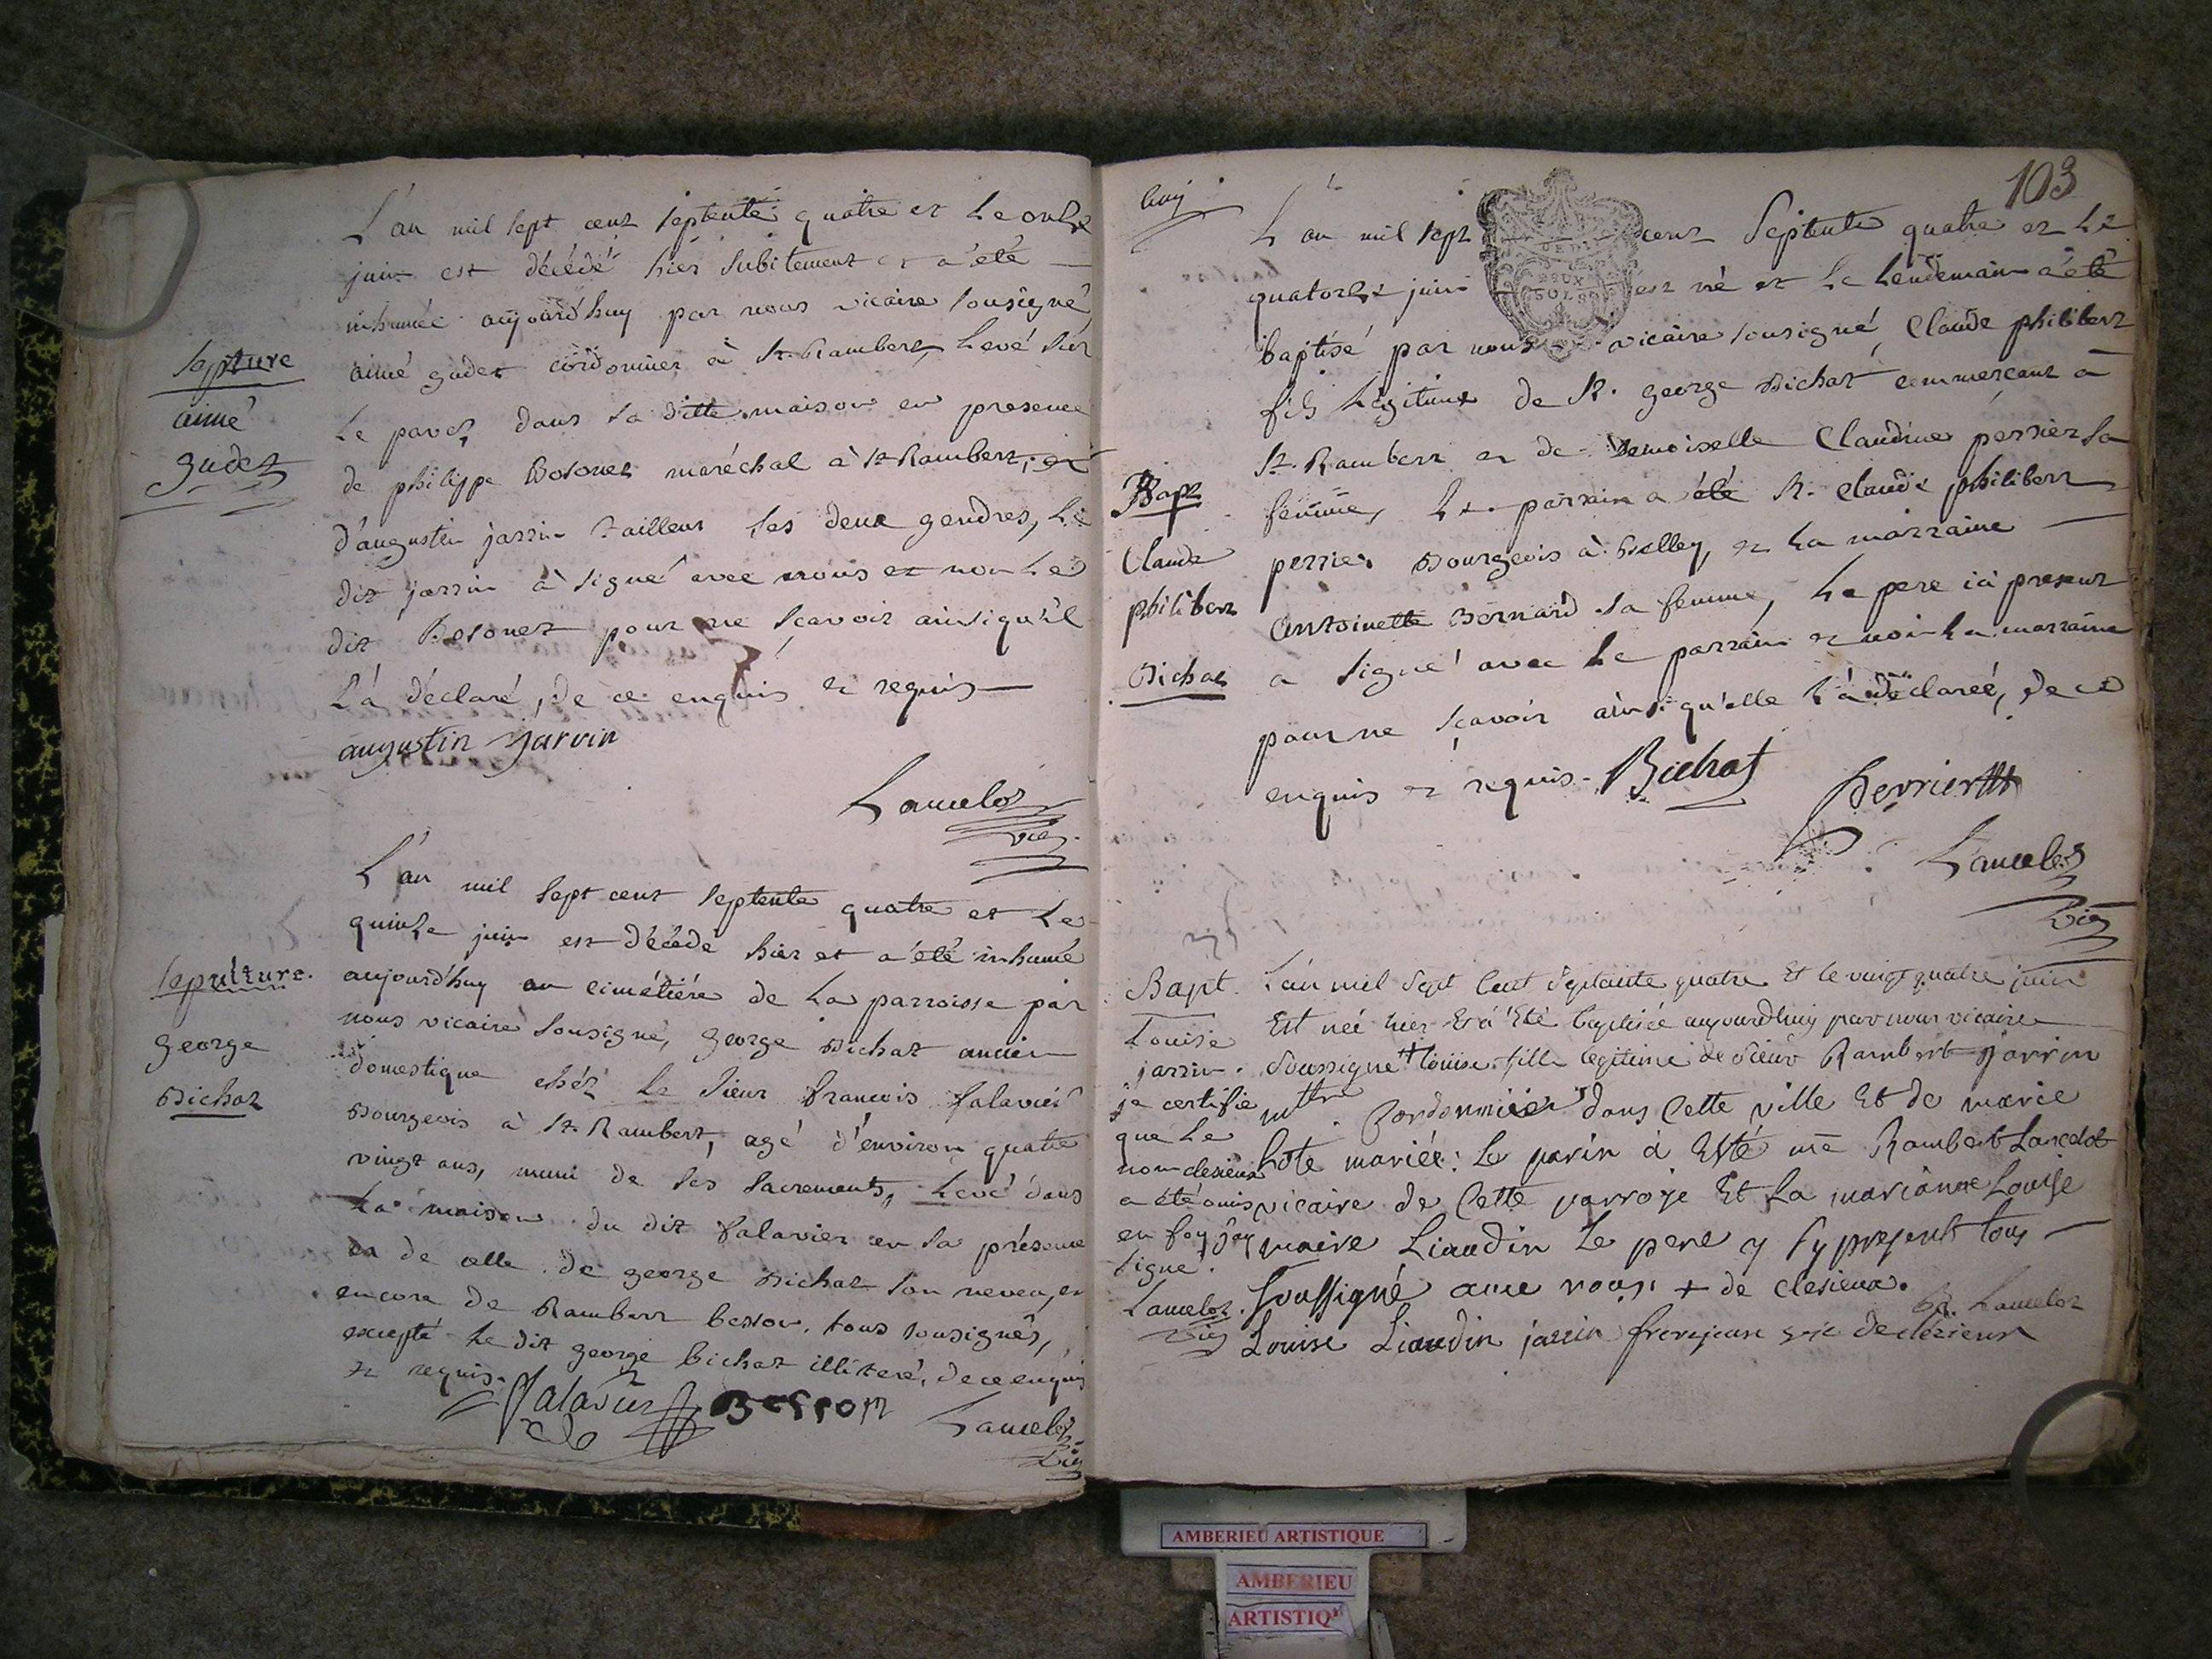 L'an mil sept cent septente quatre et le onze
juin est décédé hier subitement et a été
inhumée aujourd'huy par nous vicaire sousigné
aimé gudet cordonnier à St. Rambert, levé sur
le pavez dans sa ditte maison en presence
de philippe Bosonet maréchal à St Rambert, et
d'augustin jarrin tailleur ses deux gendres, le
dit jarrin à signé avec nous et non le
dit Bosonet pour ne sçavoir ainsi qu'il
l'a déclaré, de ce enquis et requis
augustin jarrin
Lancelot
vic.
Septure
aimé
gudet
L'an mil sept cent septente quatre et le
quinze juin est décédé hier et a été inhumé
aujourd'huy au cimétiére de la parroisse par
nous vicaire sousigné, george Bichat ancien
domestique chéz le sieur francois falavier
Bourgeois à St. Rambert, agé d'environ quatre
vingt ans, muni de ses sacrements, levé dans
la maison du dit falavier en sa présence
en de celle de george Bichat son neveu, et
encore de Rambert besson, tous sousignés,
excepté le dit george bichat illiteré, de ce enquis
et requis.
falavier Besson Lancelot
vic
Sepulture.
george
Bichat
103
L'an mil sept cent Septente quatre et le
quatorze juin est né et le lendemain a été
baptisé par nous vicaire sousigné, Claude philibert
fils légitime de Sr. george Bichat commerçant à
St. Rambert et de Demoiselle Claudine perrier sa
femme, le parrain a été Sr. Claude philibert
perrier Bourgeois à Belley, et la marraine
Antoinette Bernard sa femme, le pere ici present
a signé avec le parrain et non la marraine
pour ne sçavoir ainsi qu'elle l'a déclareé, de ce
enquis et requis. Bichat Perrier
Lancelot
vic
Bapt
Claude
philibert
Bichat
DEUX
SOLS
L'an mil Sept Cent Septante quatre Et le vingt quatre juin
Est neé hier Et a Eté baptisée aujourdhuy par nous vicaire
Soussigné + louise fille legitime de sieur Rambert Jarrin
mtre Cordonnier dans Cette ville Et de marie
hote mariéé: Le parin à Esté me Rambert Lancelot
vicaire de Cette parroje Et la marianne Louise
marie Liaudin Le pere y Sy present tous
Soussigné avec nous. + de clesieux.
R. Lancelot
Louise Liaudin jarrin frerejean vic declézieux
Bapt.
Louise
jarrin.
je certifie
que le
nom clesieux
a été omis
en foy j'ay
signé.
Lancelot.
vic
AMBERIEU ARTISTIQUE
AMBERIEU
ARTISTIQ